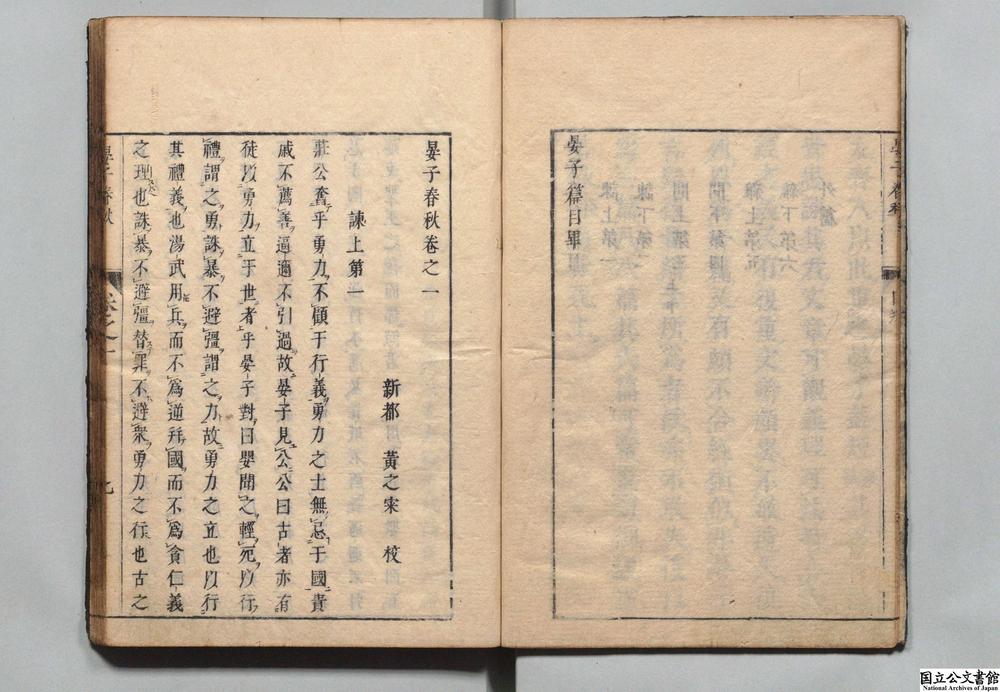 晏子篇目畢
晏子春秋卷之一
新都 黄之寀 校
諫上第一
莊公奮乎勇力不顧于行義勇力之士無忌于國貴
戚不薦善逼邇不引過故晏子見公公曰古者亦有
徒以勇力立于世者乎晏子對曰嬰聞之輕死以行
禮謂之勇誅暴不避彊謂之力故勇力之立也以行
其禮義也湯武用兵而不爲逆幷國而不爲貪仁義
之理也誅暴不避彊替罪不避衆勇力之行也古之
晏子春秋
卷之一
九
国立公文書館
National Archives of Japan